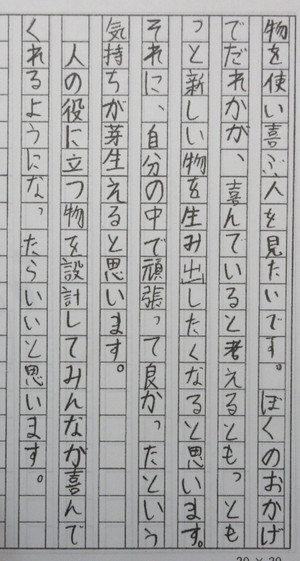 物を使い喜ぶ人を見たいです。ぼくのおかげ
でだれかが、喜んでいると考えるともっとも
っと新しい物を生み出したくなると思います。
それに、自分の中で頑張って良かったという
気持ちが芽生えると思います。
人の役に立つ物を設計してみんなが喜んで
くれるようになったらいいと思います。